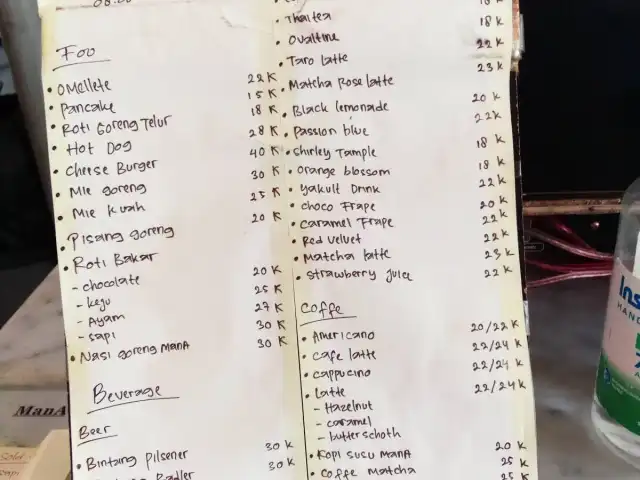 08.00
Foo
• OMellete 22 K
• Pancake 15 K
• Roti Goreng Telur 18 K
• Hot Dog 28 K
• Cheese Burger 40 K
• Mie goreng 30 K
• Mie Kuah 25 K
• Pisang goreng 20 K
• Roti Bakar
- chocolate 20 K
- keju 25 K
- Ayam 27 K
- sapi 30 K
• Nasi goreng ManA 30 K
Beverage
Beer
• Bintang Pilsener 30 K
Radler 30 K
18 K
• Thai tea 18 K
• Ovaltine 22 K
• Taro latte 23 K
• Matcha Rose latte
• Black lemonade 20 K
• Passion blue 22K
• Shirley Tample 18 K
• Orange blossom 18 K
• Yakult Drink 22 K
• Choco Frape 20 K
• Caramel Frape 22 K
• Red velvet 22 K
• Matcha latte 23 K
• Strawberry juice 22 K
Coffe
• Americano 20/22 K
• Cafe latte 22/24 K
• Cappucino 22/24 K
• Latte 22/24 K
- Hazelnut
- caramel
- butterschoth
• Kopi susu ManA 20 K
• Coffe Matcha 25 K
25 K
ManA
Ins
HAND